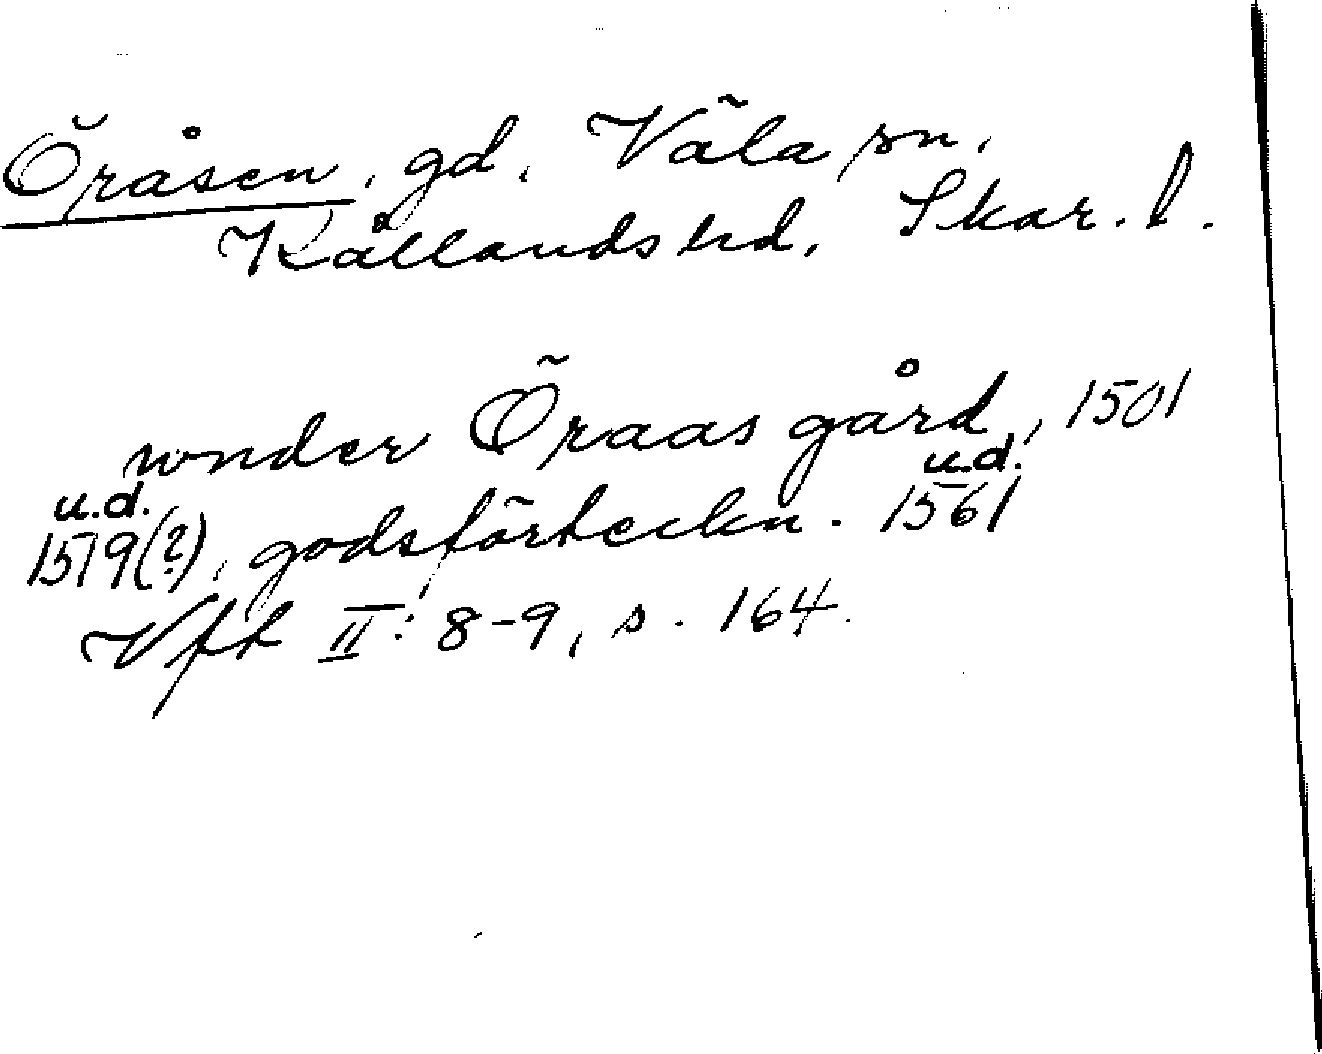 Öråsen, gd. Väla sn.
Kållands hd. Skar. l.
wnder Öraas gård, 1501
u.d. u.d.
1519(?), godsförteckn. 1561
Vfk II: 8-9, s. 164.